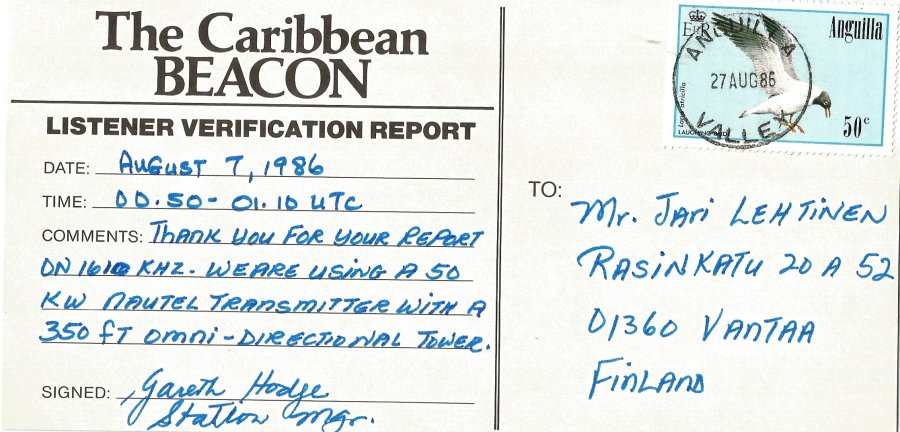 The Caribbean
BEACON
LISTENER VERIFICATION REPORT
DATE: AUGUST 7, 1986
TIME: 00.50 - 01.10 UTC
COMMENTS: THANK YOU FOR YOUR REPORT
ON 1610 KHZ. WE ARE USING A 50
KW NAUTEL TRANSMITTER WITH A
350 FT OMNI-DIRECTIONAL TOWER.
SIGNED: Gareth Hodge
Station Mgr.
EIIR
Anguilla
ANGUILLA
27 AUG 86
VALLEY
Larus atricilla
LAUGHING
50c
TO:
Mr. Jari LEHTINEN
RASINKATU 20 A 52
01360 VANTAA
FINLAND